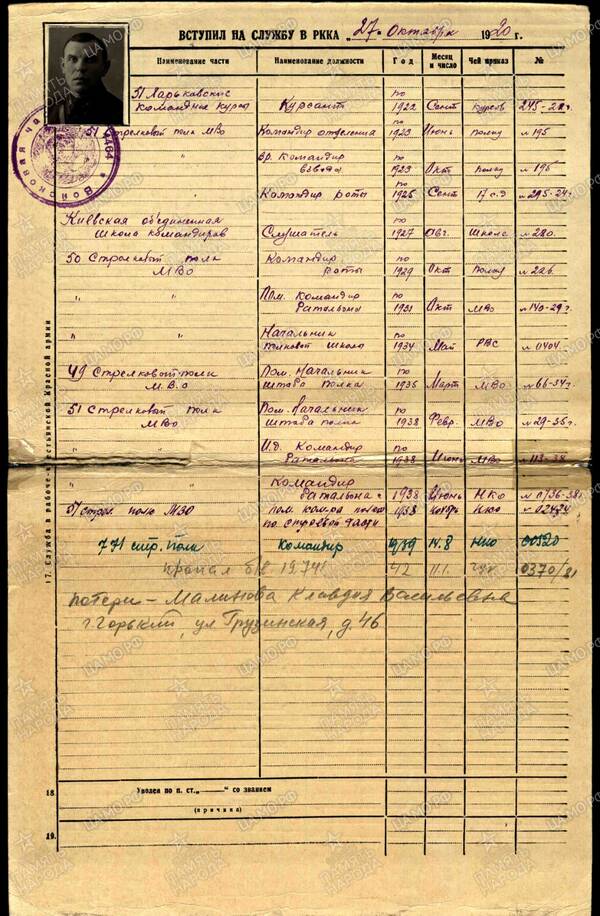 ВСТУПИЛ НА СЛУЖБУ В РККА „27“ Октября 1920 г.
Наименование части Наименование должности Год Месяц и число Чей приказ №
51 Харьковские по
Командные курсы Курсант 1922 Сент Курсов 245-22г.
51 Стрелковый полк МВО Командир отделения по 1923 Июнь Полку № 195
" Вр. Командир по
взвода 1923 Окт Полку № 195
" Командир роты по 1925 Сент 17 с.д № 295-24г.
Киевская объединенная по
школа командиров Слушатель 1927 Авг. Школе № 220.
50 Стрелковый полк Командир по
МВО роты 1929 Окт Полку № 226.
" " Пом. Командир по
Батальона 1931 Окт МВО № 140-29г.
" " Начальник по
полковой школы 1934 Май РВС № 0404.
49 Стрелковый полк Пом. Начальник по
М.В.О штаба полка 1935 Март МВО № 66-34г.
51 Стрелковый полк Пом. Начальник по
МВО штаба полка 1938 Февр. МВО № 29-35г.
И.д. Командир по
Батальона 1938 Июнь МВО № 113-38
" " Командир
батальона 1938 Июнь НКО № 0136-38г.
пом. комра полка 1938 Ноябрь НКО № 02424
по строевой части
771 стр. полк Командир 1939 14.8 НКО 00520
пропал б/в 1941г 42 11.1. ГУК 0370/81
потери – Малинова Клавдия Васильевна
г Горький, ул Грузинская, д. 46
17. Служба в рабоче-крестьянской Красной армии
18. Уволен по п. ст. „ “ со званием
(причина)
19.
Воинская ча
464
ЦАМО.РФ
ПАМЯТЬ НАРОДА